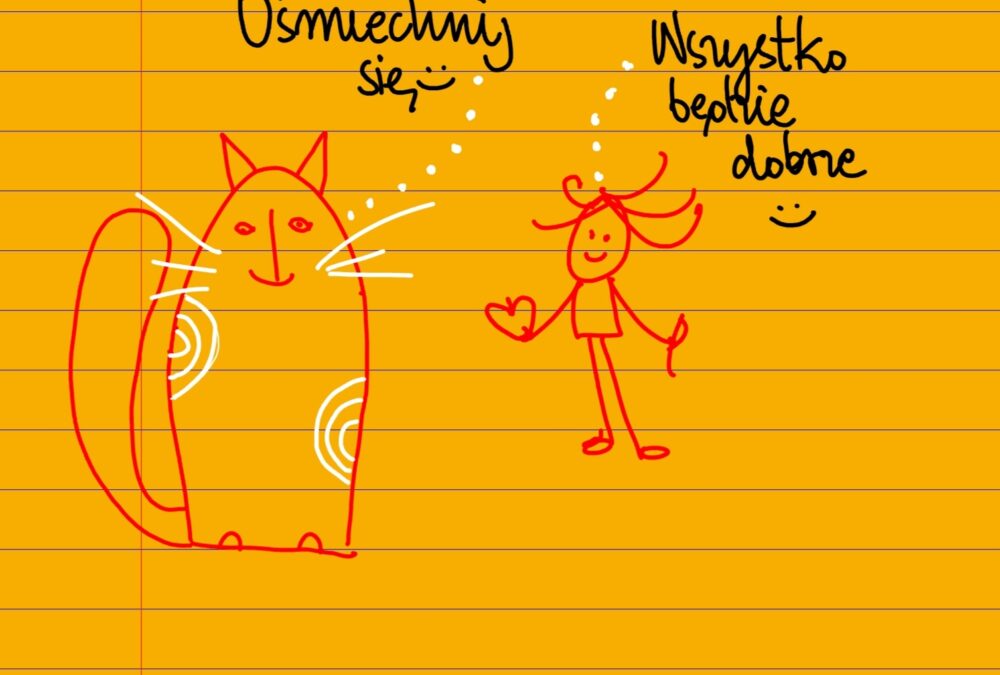 Uśmiechnij
się
Wszystko
będzie
dobrze